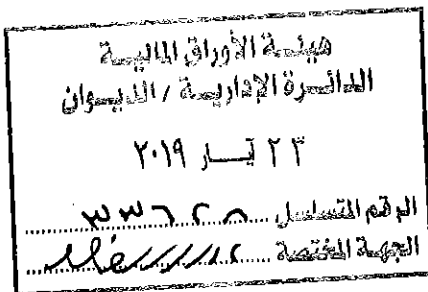 هيئة الأوراق المالية
الدائرة الإدارية / الديوان
٢٣ آيار ٢٠١٩
الرقم المتسلسل
الجهة المختصة